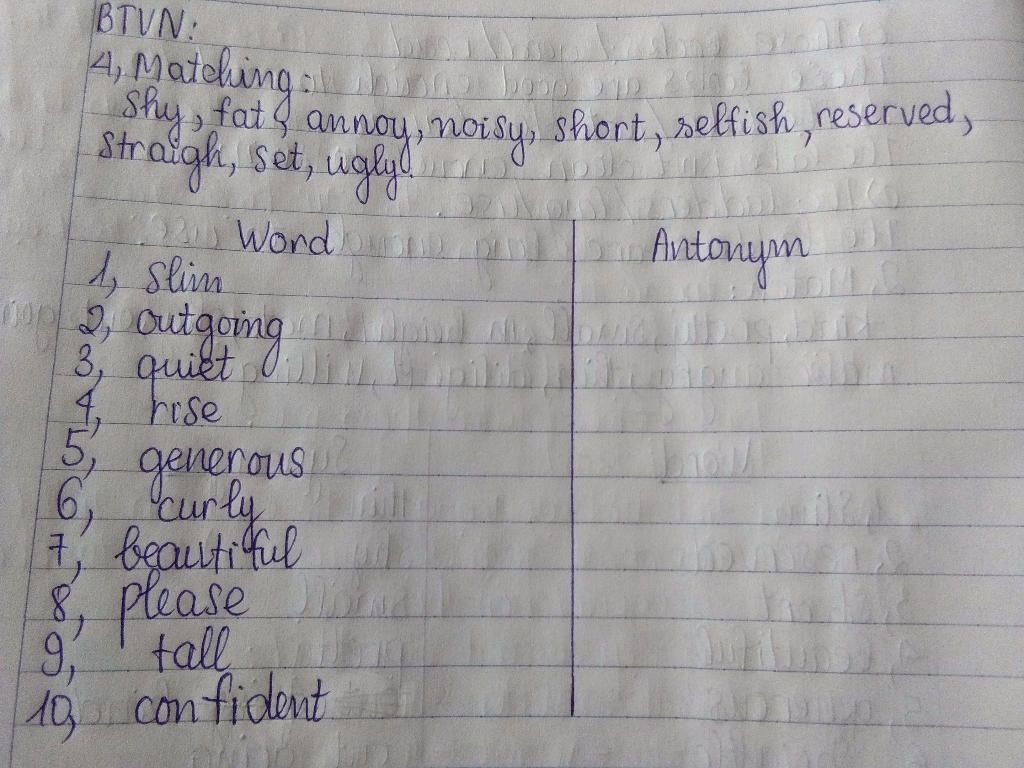 BTVN:
4, Matching:
shy, fat, annoy, noisy, short, selfish, reserved,
straigh, set, ugly.
Word Antonym
1, slim
2, outgoing
3, quiet
4, rise
5, generous
6, curly
7, beautiful
8, please
9, tall
10, confident